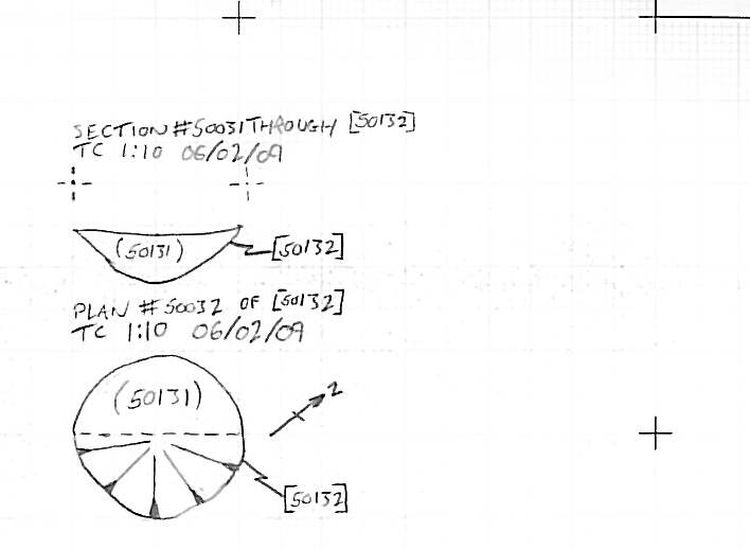 SECTION #50031 THROUGH [50132]
TC 1:10 06/02/09
(50131)
[50132]
PLAN #50032 OF [50132]
TC 1:10 06/02/09
(50131)
N
[50132]